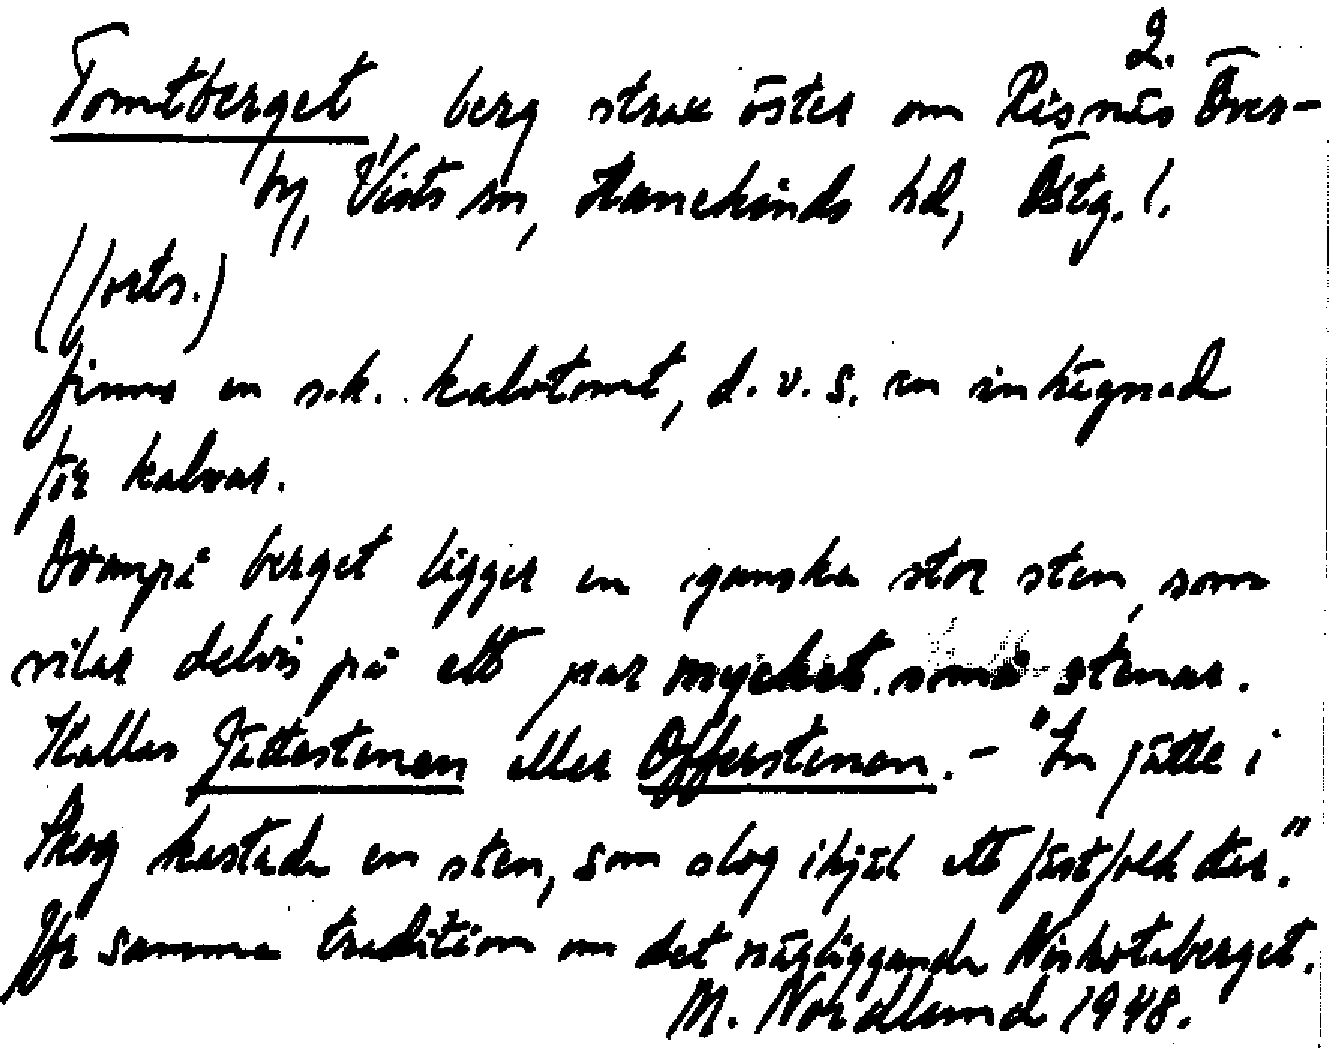 2.
Tomtberget, berg strax öster om Risnäs Över-
by, Vists sn, Hanekinds hd, Östg. l.
(forts.)
finns en s.k. kalvtomt, d.v.s. en inhägnad
för kalvar.
Ovanpå berget ligger en ganska stor sten, som
vilar delvis på ett par mycket små stenar.
Kallas Jättestenen eller Offerstenen. - "En jätte i
Skog kastade en sten, som slog ihjäl ett fästfolk där."
Jfr samma tradition om det närliggande
M. Nordlund 1948.